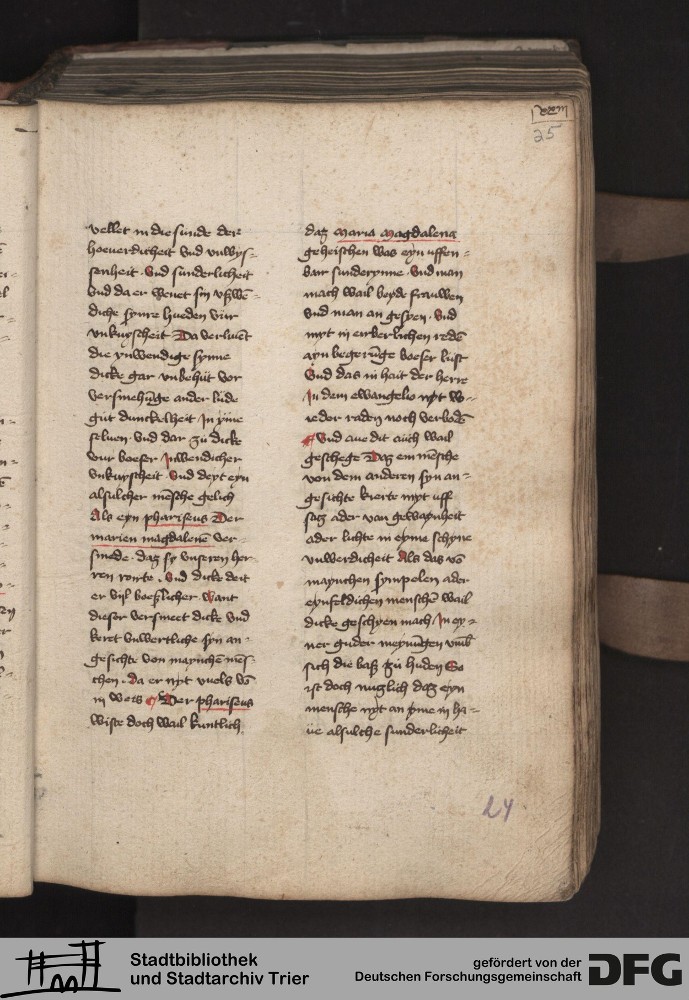 25
vellet in die sunde der
hoeuerdicheit vnd vnwys-
senheit . Vnd sunderlicheit
vnd da er wenet sin vßwen-
diche synne hueden vur
vnkuyscheit Da verluert
die ynwendige synne
dicke gar vnbehut vor
versmehūge ander lude
gut dunckelheit In yme
seluen . vnd dar zu dicke
vur boeser Inwendicher
vnkuyscheit . Vnd deyt eyn
alsulcher mēsche gelich
Als eyn phariseus Der
marien magdalenē ver-
smede . daz sy vnseren her-
ren rorte . Vnd dicke deit
er vijl boeslicher want
dieser versmeet dicke vnd
keret vnwertliche syn an-
gesichte von maynchē mēs-
chen . da er nyt vuels vō
in weis Der phariseus
wiste doch wail kuntlich
daz Maria Magdalena
geheischen was eyn uffen-
bar sunderynne . vnd man
mach wail beyde frauwen
vnd man an gesyen . vnd
myt in eirberlichen redē
ayn begerūge boeser lust
Vnd das in hait der herre
In dem ewangelio nyt we-
reder raden noch verbodē
Vnd aue dit auch wail
geschege Daz ein mēsche
von dem anderen syn an-
gesichte kierte myt uff
satz ader van gewaynheit
ader lichte in eyme schyne
vnwerdicheit Als das vō
maynchen sympelen ader
eynfeldichen menschē wail
dicke geschyen mach In ey-
ner guder meynūgen vmb
sich die baß zu huden So
ist doch muglich daz eyn
mensche nyt an yme in ha-
ue alsulche sunderlicheit
24
Stadtbibliothek
und Stadtarchiv Trier
gefördert von der
Deutschen Forschungsgemeinschaft
DFG